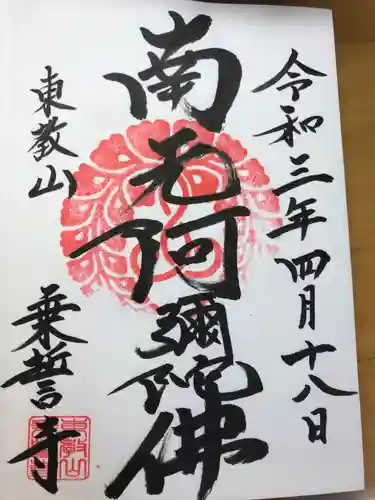 令和三年四月十八日
南无阿彌陀佛
東教山
乗誓寺